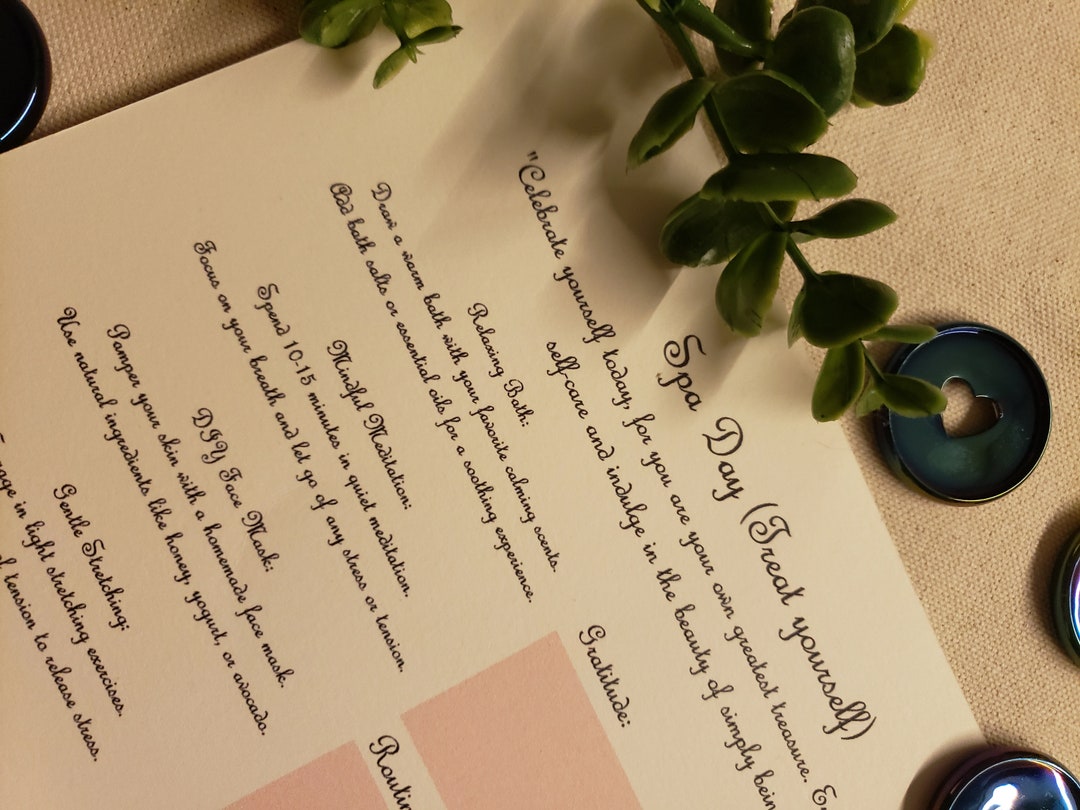 Spa Day (Treat yourself)
"Celebrate yourself today, for you are your own greatest treasure.
self-care and indulge in the beauty of simply
Relaxing Bath:
Draw a warm bath with your favorite calming scents.
Add bath salts or essential oils for a soothing experience.
Mindful Meditation:
Spend 10-15 minutes in quiet meditation.
Focus on your breath and let go of any stress or tension.
DIY Face Mask:
Pamper your skin with a homemade face mask.
Use natural ingredients like honey, yogurt, or avocado.
Gentle Stretching:
in light stretching exercises.
tension to release stress.
Gratitude: